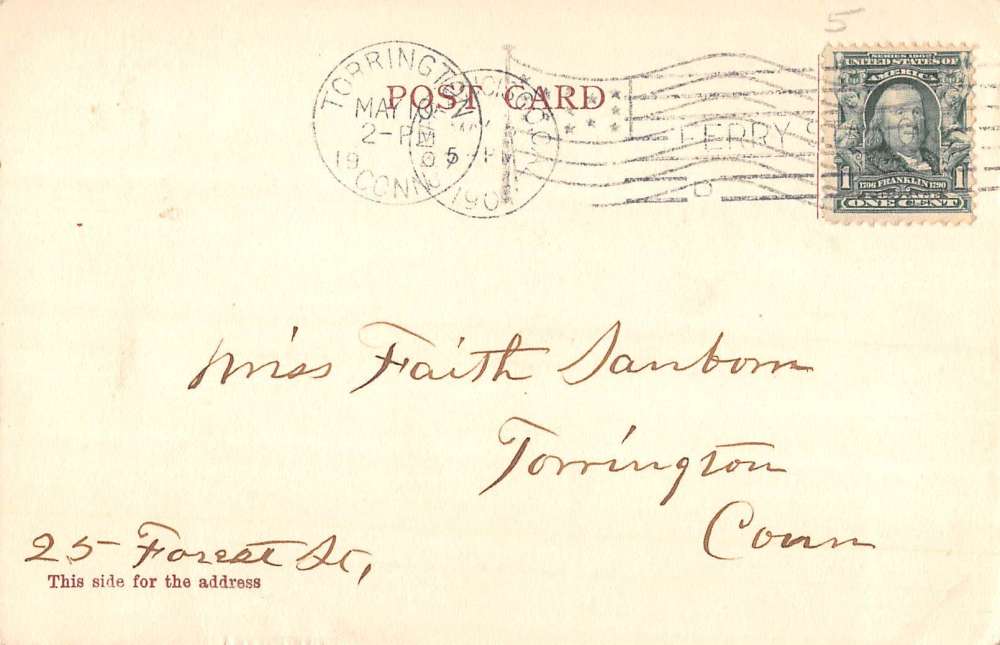 5
POST CARD
TORRINGTON
MAY 10
2-PM
19 05
CONN.
FERRY
SERIES 1902
UNITED STATES OF
AMERICA
1 1706 FRANKLIN 1790 1
ONE CENT
Miss Faith Sanborn
Torrington
Conn
25 Forest St,
This side for the address